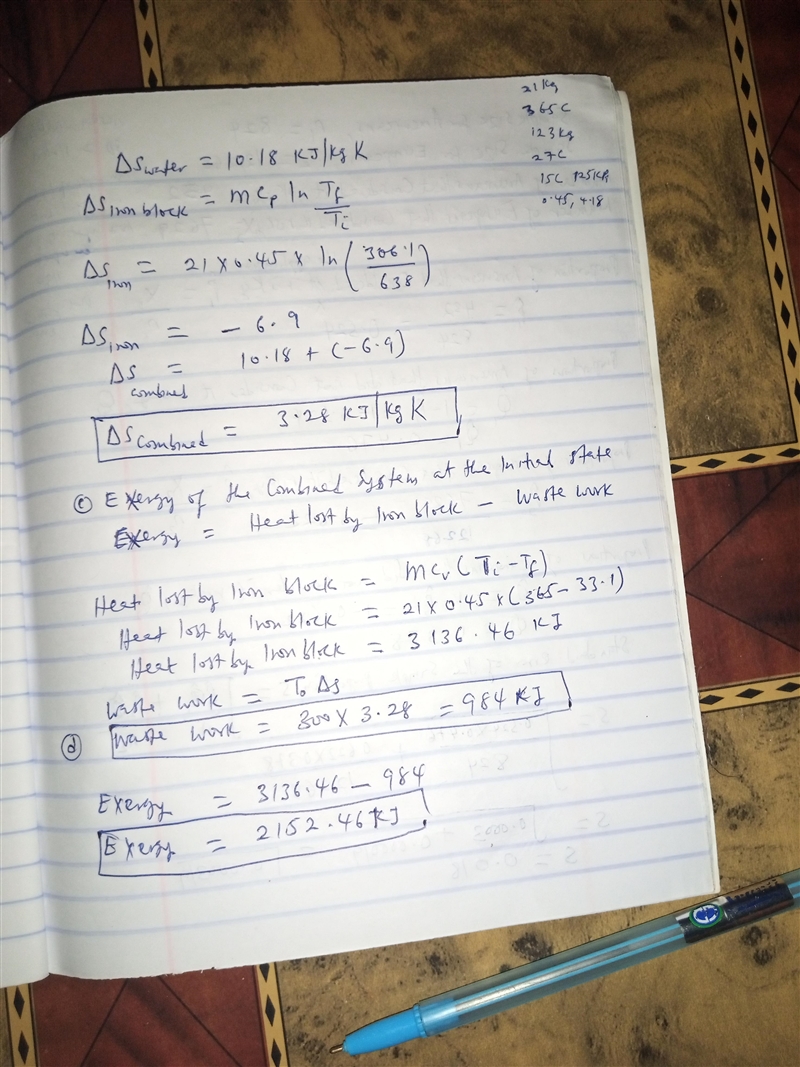 21 Kg
365C
123kg
27C
15C 125KPa
0.45, 4.18
ΔS water = 10.18 KJ/kg K
ΔS iron block = m Cp ln Tf/Ti
ΔS iron = 21 x 0.45 x ln (306.1/638)
ΔS iron = - 6.9
ΔS combined = 10.18 + (-6.9)
ΔS combined = 3.28 KJ/kg K
(c) Exergy of the Combined System at the Initial state
Exergy = Heat lost by Iron block - Waste work
Heat lost by Iron block = mcv (Ti - Tf)
Heat lost by Iron block = 21 x 0.45 x (365 - 33.1)
Heat lost by Iron block = 3136.46 KJ
Waste work = To Δs
(d) Waste work = 300 x 3.28 = 984 KJ
Exergy = 3136.46 - 984
Exergy = 2152.46 KJ